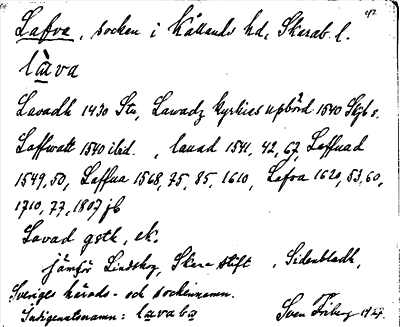 Lafva, socken i Kållands hd, Skarab. l.
làva
Lavadh 1430 Stu, Lawadz kyrkies upbörd 1540 Skjb s.
Laffwatt 1540 ibid., lauad 1541, 42, 67, Laffuad
1549, 50, Laffua 1568, 75, 85, 1610, Lafva 1620, 53, 60,
1710, 77, 1807 jb
Lavad gstk, ek.
jämför Lindskog, Skara stift, Sidenbladh,
Sveriges härads- och sockennamn.
Indigenatsnamn: lavaba
Sven Friberg 1927.